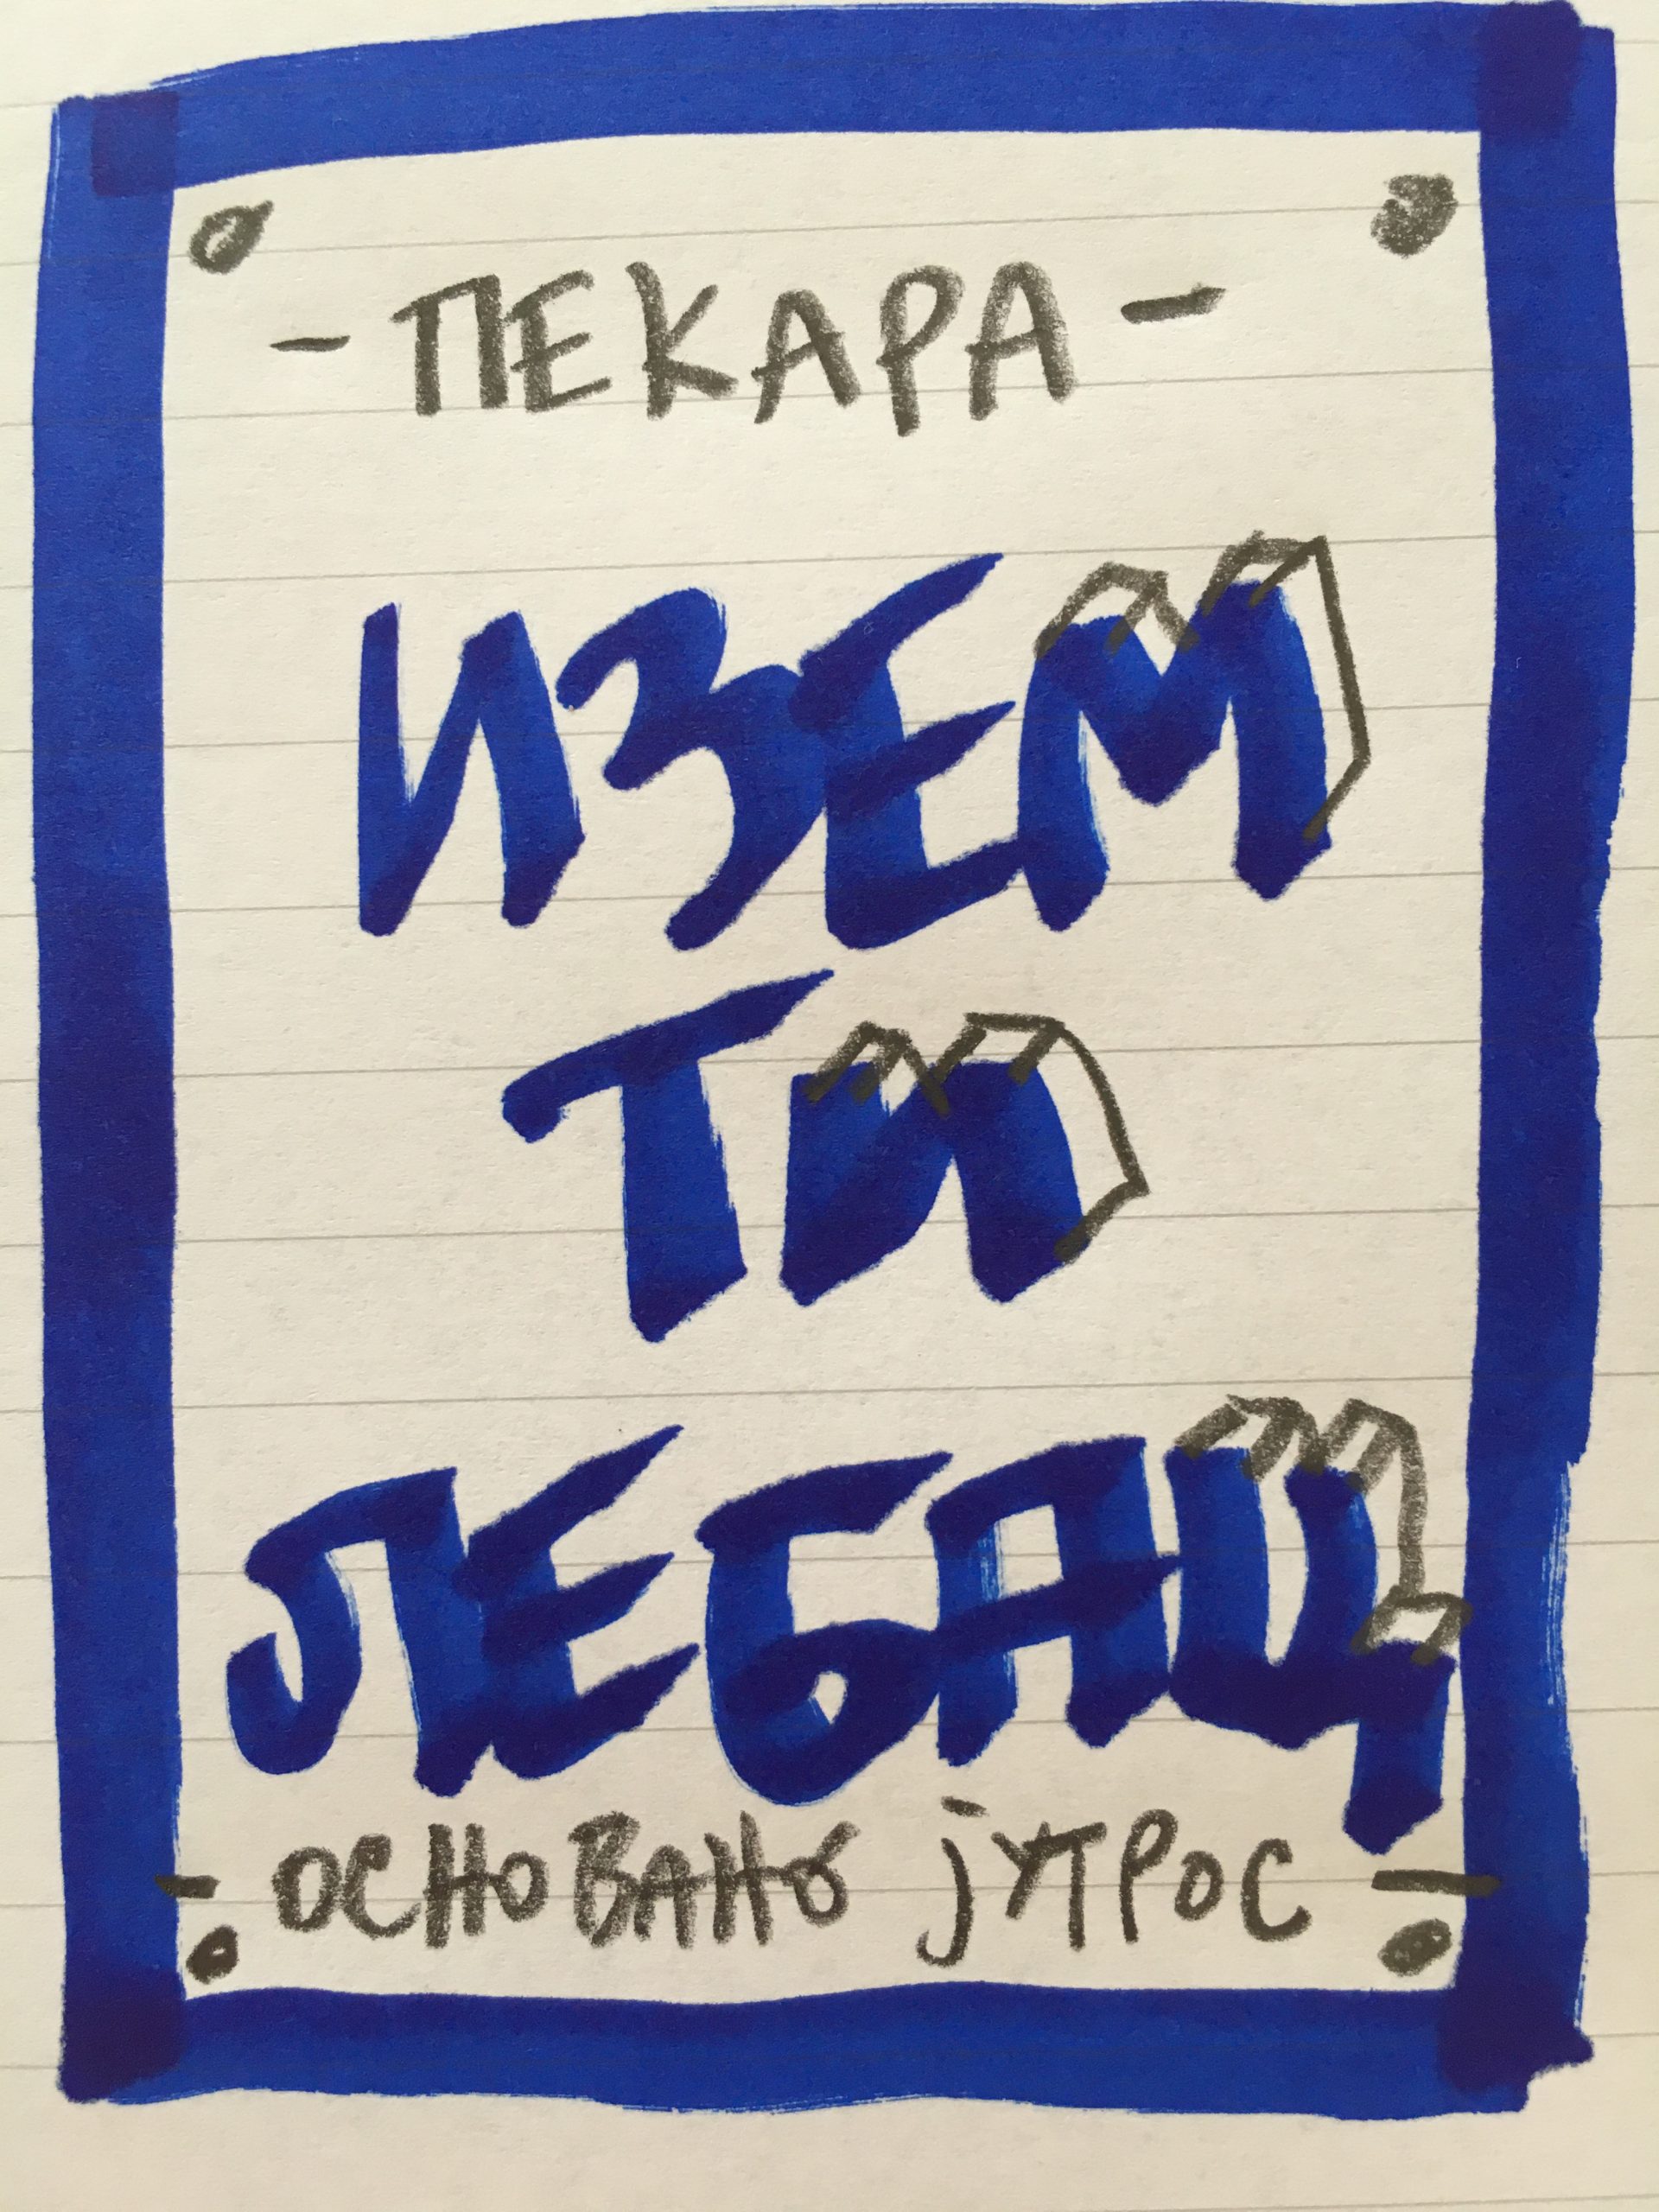 - ПЕКАРА -
ИЗЕМ
ТИ
ЛЕБАЦ
- ОСНОВАНО јУТРОС -